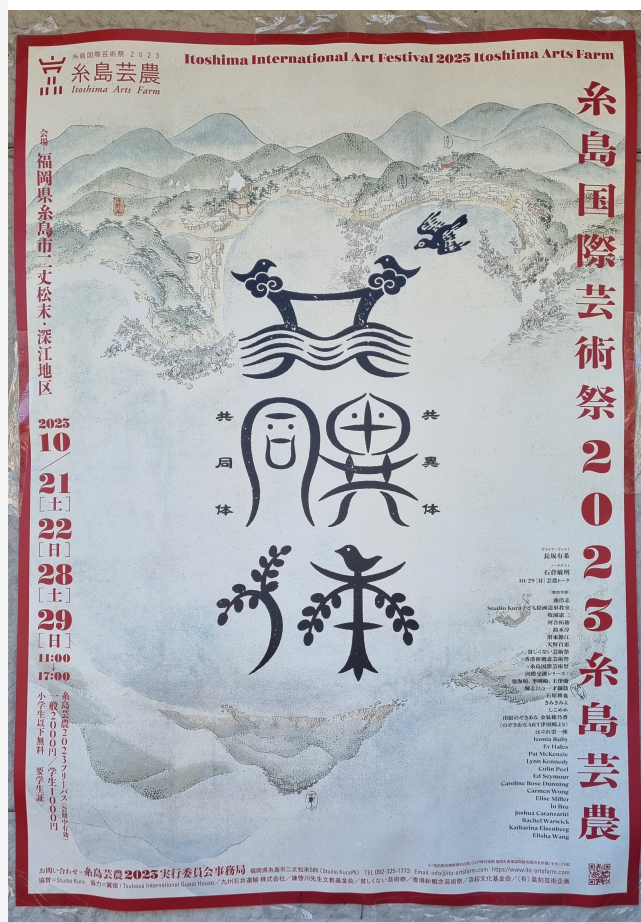 糸島国際芸術祭 2023
糸島芸農
Itoshima Arts Farm
Itoshima International Art Festival 2023 Itoshima Arts Farm
糸島国際芸術祭2023糸島芸農
会場
福岡県糸島市二丈松末・深江地区
2023
10
21
[土]
22
[日]
28
[土]
29
[日]
11:00
17:00
糸島芸農2023フリーパス(会期中有効)
一般2000円 学生1000円
小学生以下無料 要学生証
共同体
共異体
ゲストアーティスト
長坂有希
石倉敏明
10/29 [日] 芸農トーク
藤浩志
Studio Kura こども絵画造形教室
牧園憲二
河合拓始
鈴木淳
天野百恵
貧しくない芸術祭
×香港新概念芸術祭
×糸島国際芸術祭
国際交流シリーズ
石原雅也
きみきみよ
しこめめ
Ieonia Ruby
Ev Hales
Pat McKenzie
Lynn Kennedy
Colin Peel
Ed Seymour
Caroline Rose Dunning
Carmen Wong
Elise Miller
Iu Bru
Joshua Catanzariti
Rachel Warwick
Katharina Eisenberg
Elisha Wang
お問い合わせ 糸島芸農2023実行委員会事務局 福岡県糸島市二丈松末586 (Studio Kura内) TEL 092-325-1773 Email info@ito-artsfarm.com https://www.ito-artsfarm.com
協賛=Studio Kura 協力=翼宿/Tsubasa International Guest House/九州石井運輸 株式会社/陳啓川先生文教基金会/貧しくない芸術祭/香港新概念芸術祭/芸起文化基金会/(有)風刻芸術企画